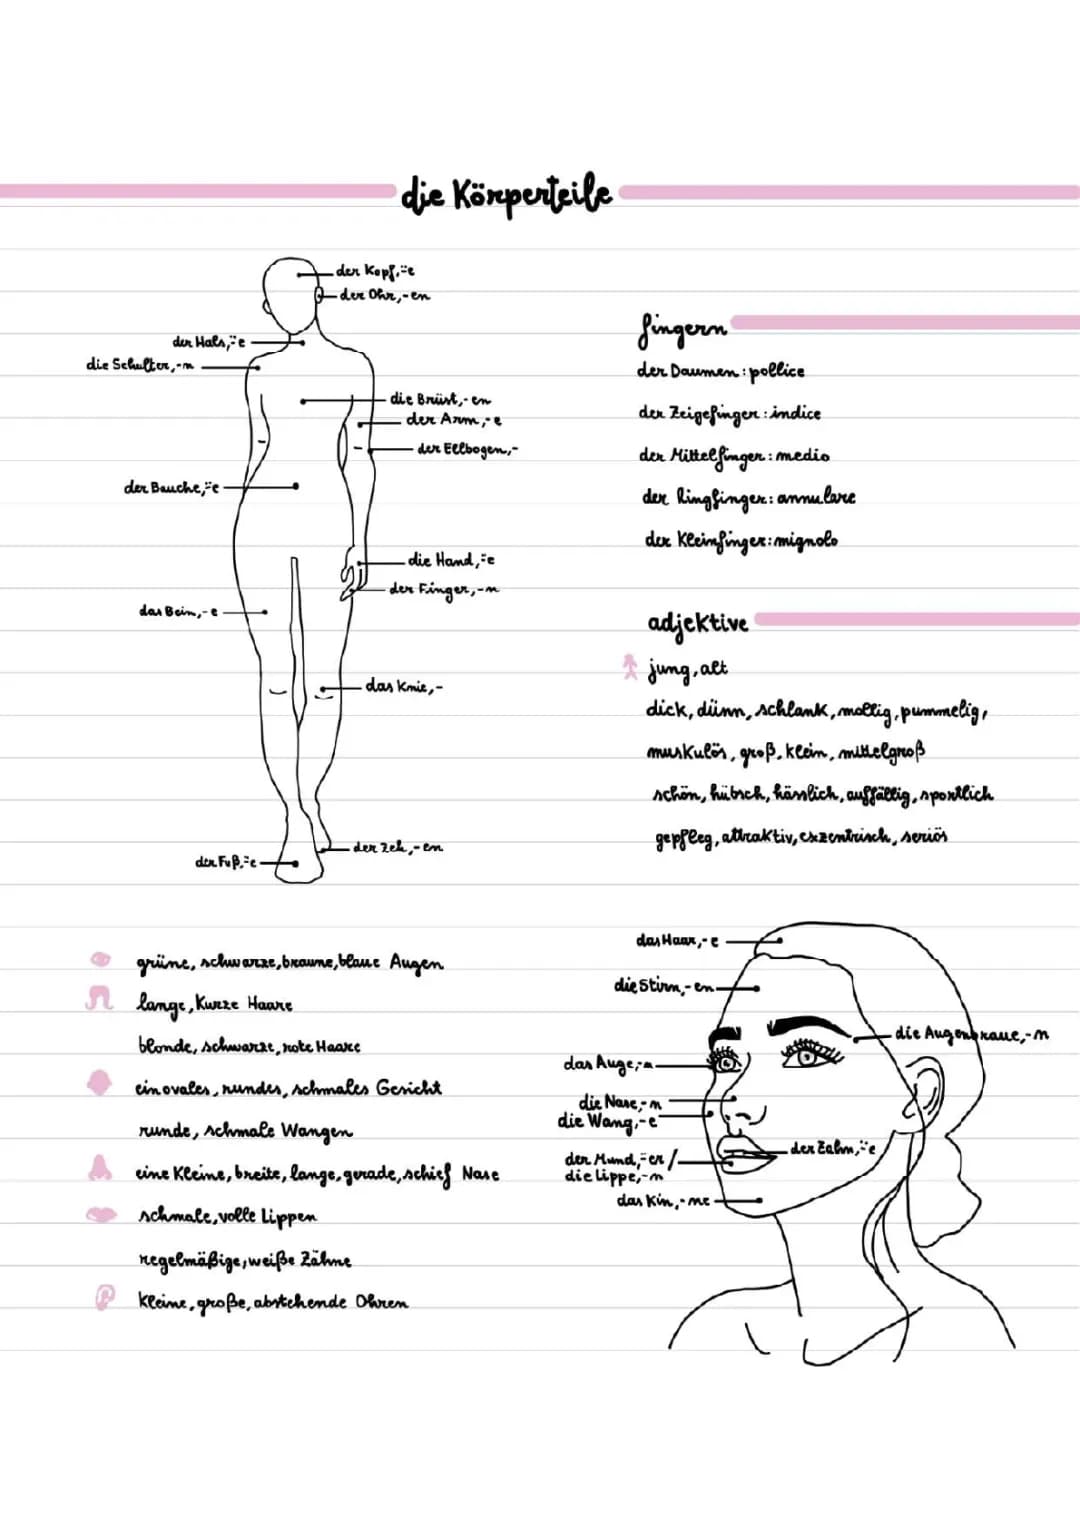 die Körperteile
der Kopf,⸚e
der Ohr,-en
der Hals,⸚e
die Schulter,-n
die Brüst,-en
der Arm,-e
der Ellbogen,-
der Bauche,⸚e
die Hand,⸚e
der Finger,-n
das Bein,-e
das Knie,-
der Zeh,-en
der Fuß,⸚e
fingern
der Daumen: pollice
der Zeigefinger: indice
der Mittelfinger: medio
der Ringfinger: annulare
der Kleinfinger: mignolo
adjektive
jung, alt
dick, dünn, schlank, mollig, pummelig,
muskulös, groß, klein, mittelgroß
schön, hübsch, hässlich, auffällig, sportlich
gepfleg, attraktiv, exzentrisch, seriös
grüne, schwarze, braune, blaue Augen
lange, kurze Haare
blonde, schwarze, rote Haare
ein ovales, rundes, schmales Gesicht
runde, schmale Wangen
eine kleine, breite, lange, gerade, schief Nase
schmale, volle Lippen
regelmäßige, weiße Zähne
kleine, große, abstehende Ohren
das Haar,-e
die Stirn,-en
die Augenbraue,-n
das Auge,-n
die Nase,-n
die Wang,-e
der Zahn,⸚e
der Mund,⸚er /
die Lippe,-n
das Kin,-ne